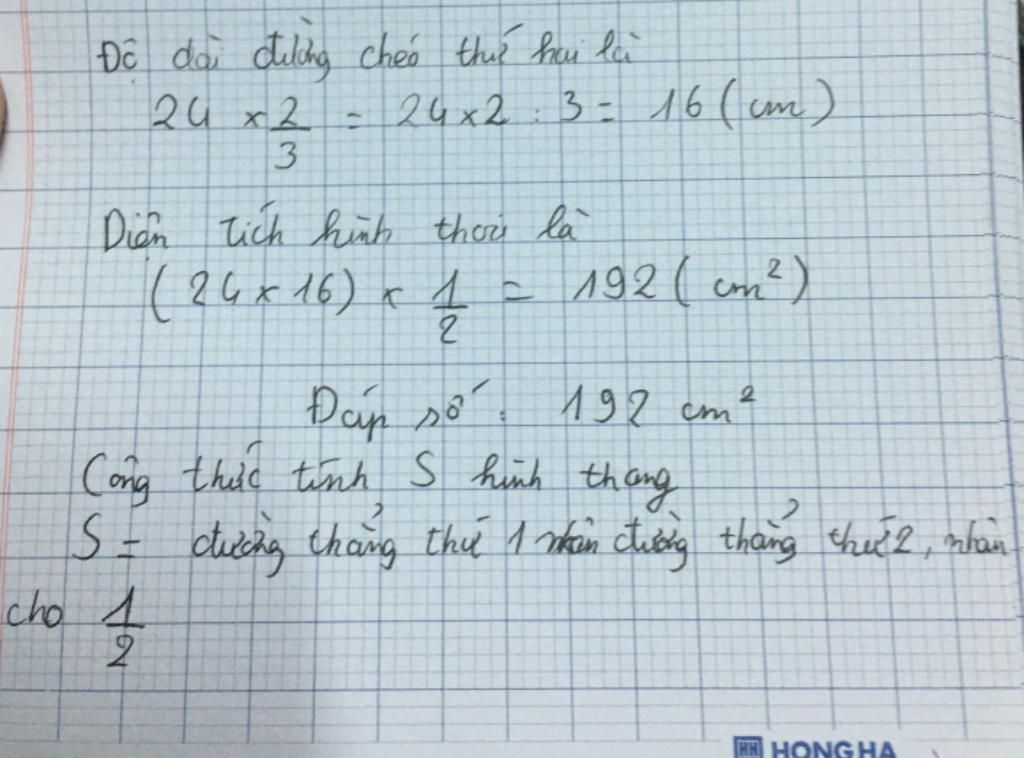 Độ dài đường chéo thứ hai là
24 × 2/3 = 24 × 2 : 3 = 16 (cm)
Diện tích hình thoi là
(24 × 16) × 1/2 = 192 (cm²)
Đáp số : 192 cm²
Công thức tính S hình thang
S = đường thẳng thứ 1 nhân đường thẳng thứ 2, nhân
cho 1/2
HH HONG HA